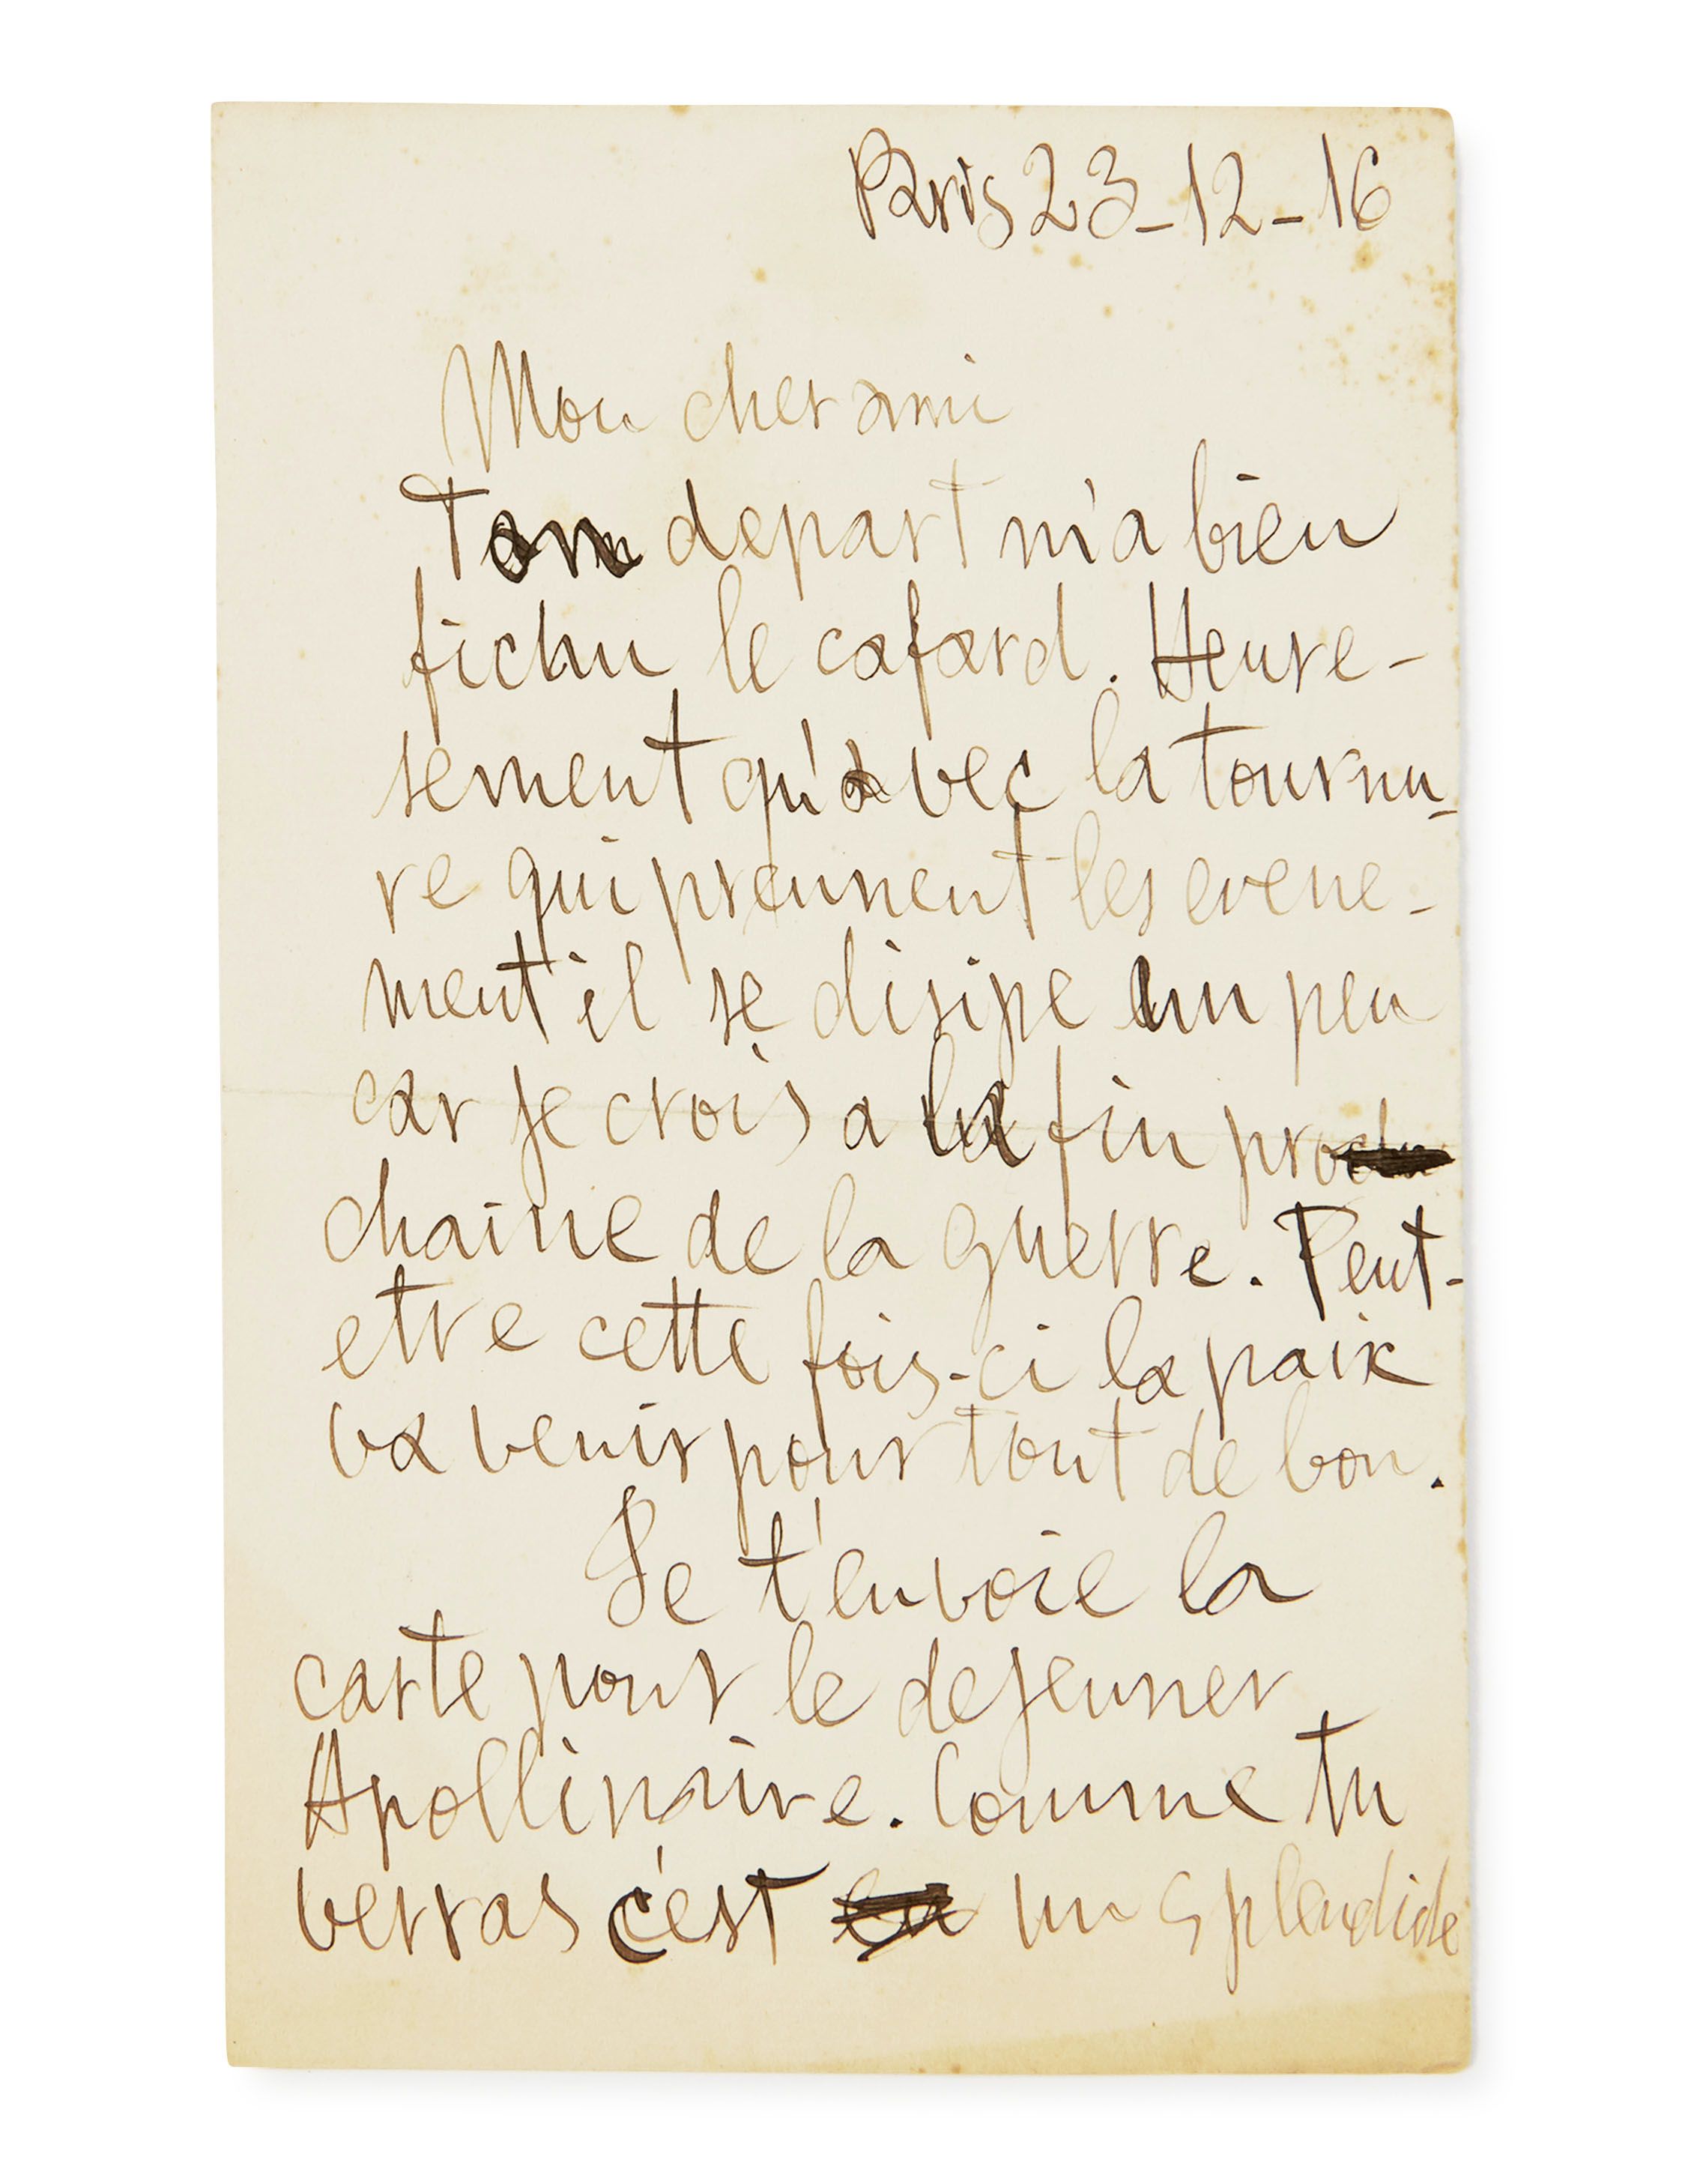 Paris 23-12-16
Mon cher ami
Ton depart m'a bien
fichu le cafard. Heure-
sement qu'avec la tournu-
re qui prennent les evene-
ment il se disipe un peu
car je crois a la fin pro
chaine de la guerre. Peut-
etre cette fois-ci la paix
va venir pour tout de bon.
Je t'envoie la
carte pour le dejeuner
Apollinaire. Comme tu
verras c'est un splendide